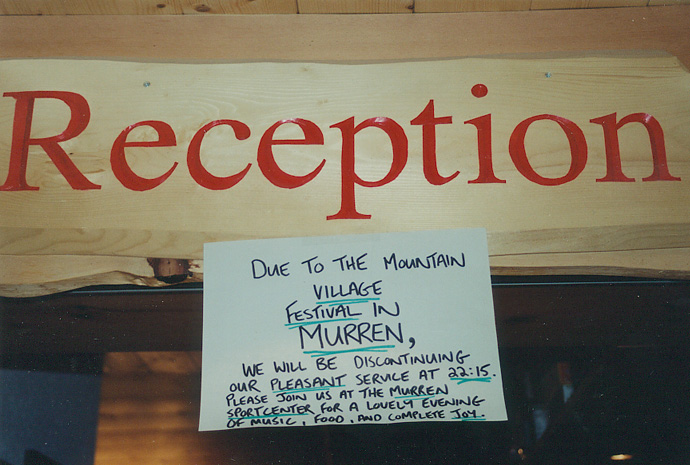 Reception
DUE TO THE MOUNTAIN
VILLAGE
FESTIVAL IN
MURREN,
WE WILL BE DISCONTINUING
OUR PLEASANT SERVICE AT 22:15.
PLEASE JOIN US AT THE MURREN
SPORTCENTER FOR A LOVELY EVENING
OF MUSIC, FOOD, AND COMPLETE JOY.